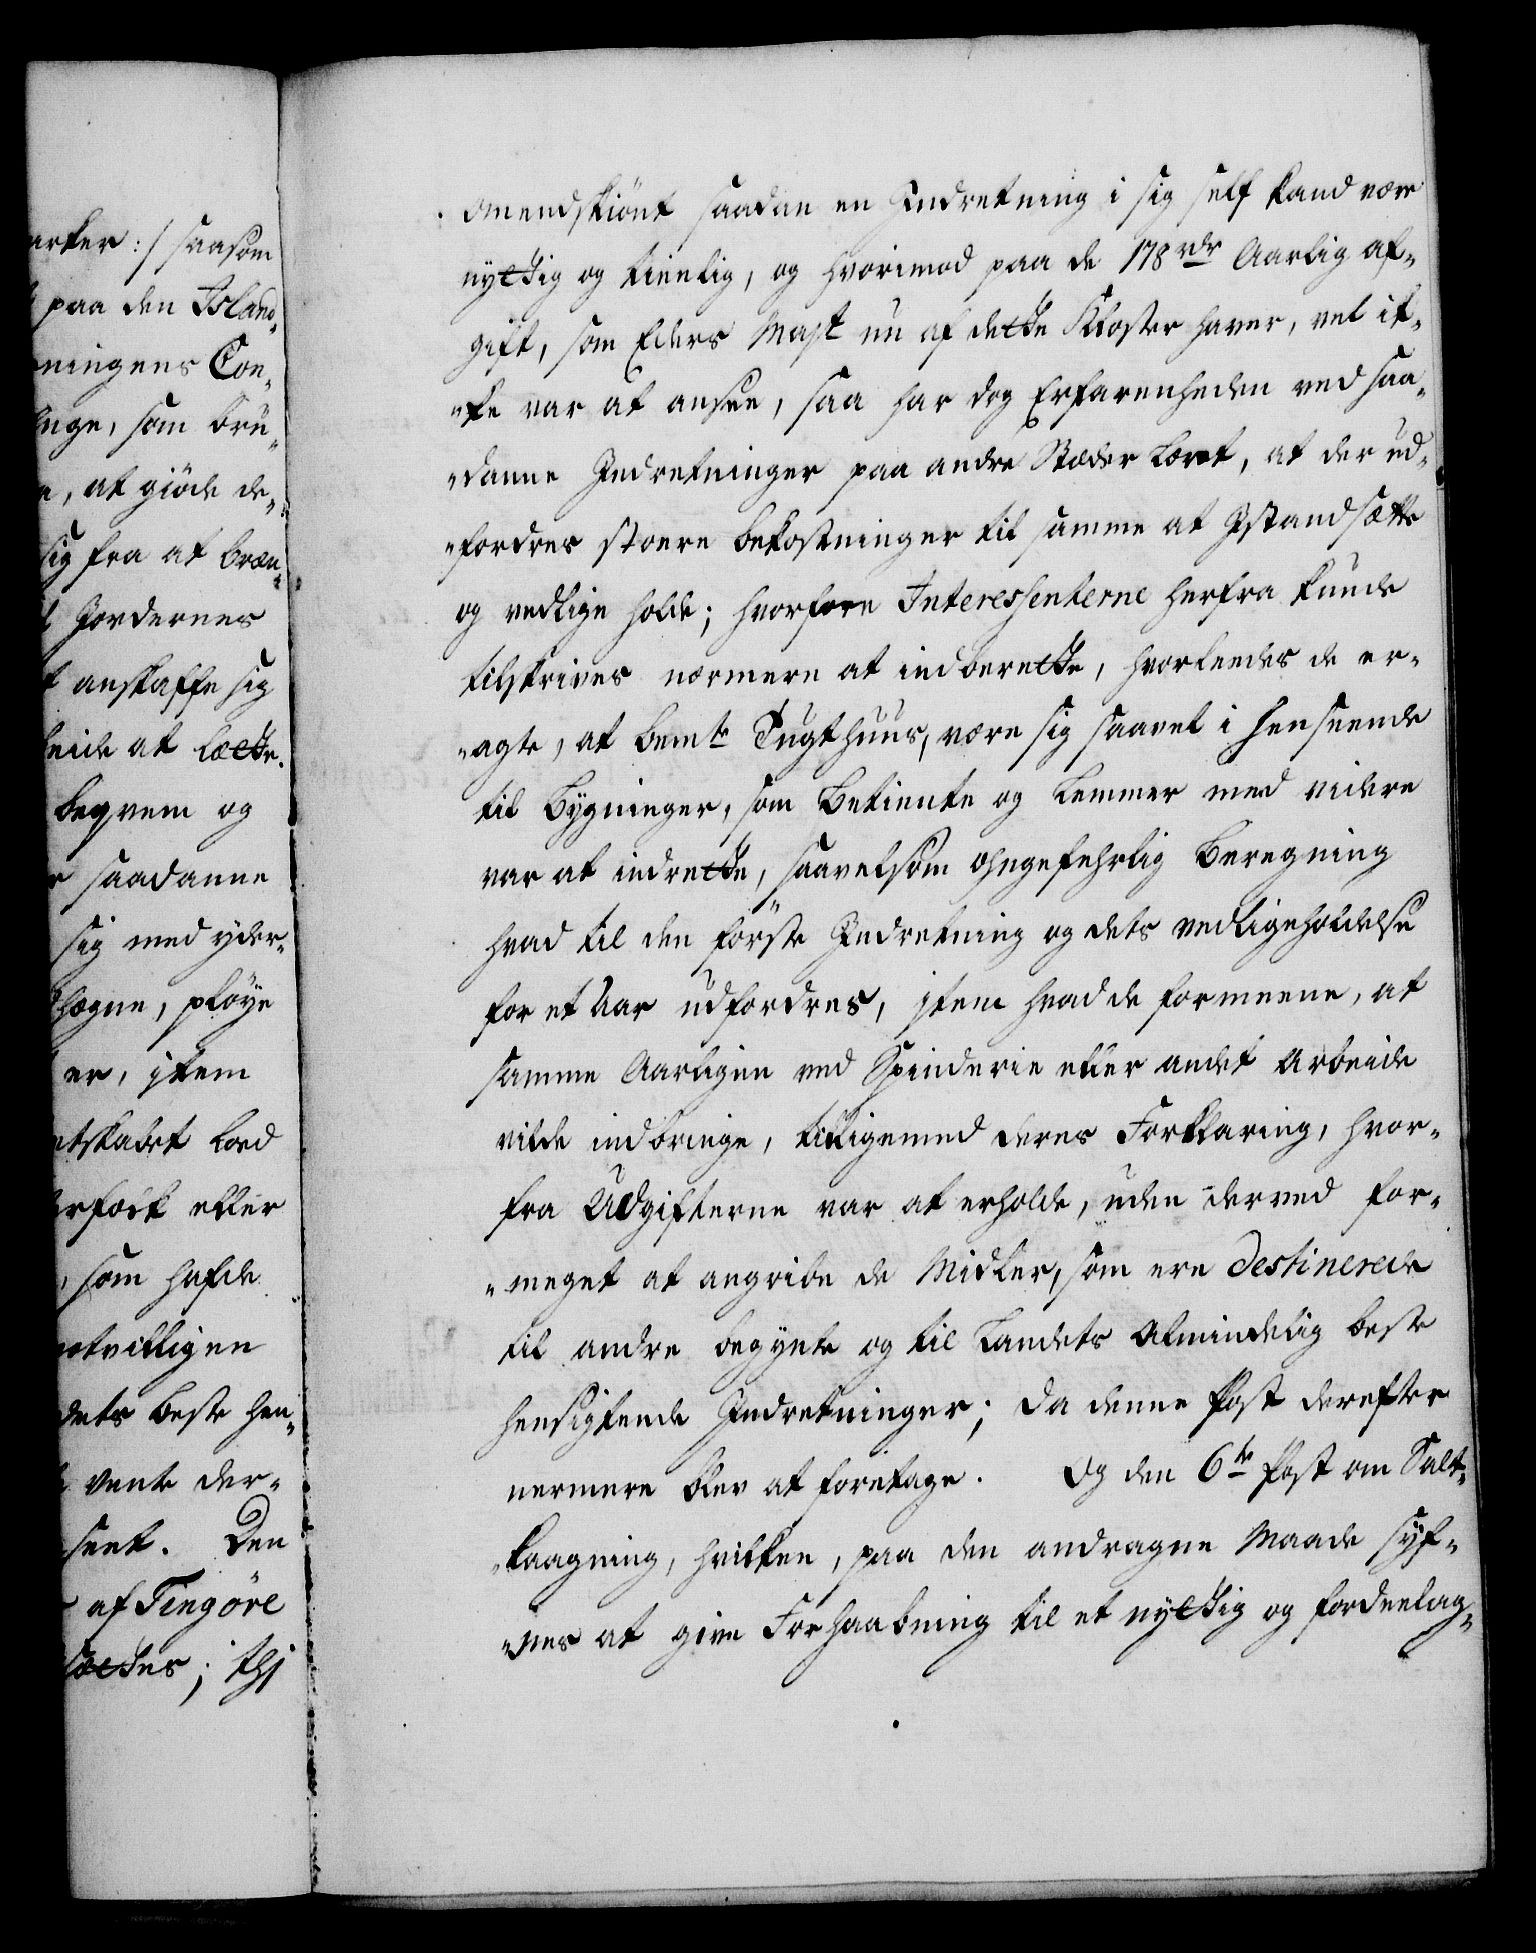 arker :/ saasom
paa den Island-
ningens Con-
nge, som bru-
, at giöde de-
sig fra at bræn-
Jordernes
anskaffe sig
beide at lætte.
beqvem og
saadanne
sig med yder-
hægne, pløye
er, item
etskabet lod
erfolk eller
, som hafde
motvilligen
dets beste hen-
vente der-
seet. Den
af Tingöre
sættes; thi
omendskiönt saadan en Indretning i sig self kand være
nyttig og tienlig, og hvorimod paa de 178 rdr Aarlig af-
gift, som Eders Mayt nu af dette Kloster haver, vel ik-
ke var at ansee, saa har dog Erfarenheden ved saa-
danne Indretninger paa andre Stæder lært, at der ud-
fordres storre bekostninger til samme at Istandsætte
og vedlige holde; hvorfore Interessenterne herfra kunde
tilskrives nærmere at indberette, hvorledes de er-
agte, at bemte Tugthuus, være sig saavel i henseende
til Bygninger, som Betiente og Lemmer med videre
var at indrette, saavelsom ohngefehrlig Beregning
hvad til den förste Indretning og dets vedligeholdelse
for et Aar udfordres, item hvad de formeene, at
samme Aarligen ved Spinderie eller andet Arbeide
vilde indbringe, tilligemed deres Forklaring, hvor-
fra Udgifterne var at erholde, uden derved for-
meget at angribe de Midler, som ere destinerede
til andre begynte og til Landets Almindelig beste
hensigtende Indretninger; da denne Post derefter
nermere blev at foretage. Og den 6te Post om Salt-
kaagning, hvilken, paa den andragne Maade syf-
nes at give Forhaabning til et nyttig og fordeelag-